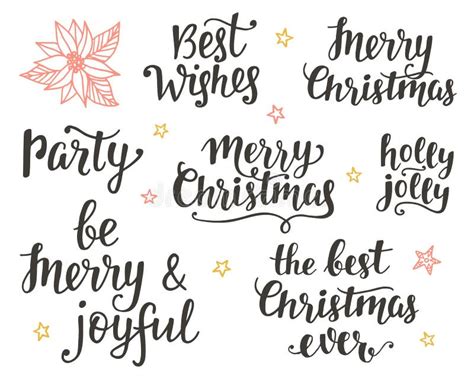 Best
Wishes
Merry
Christmas
Party
Merry
Christmas
holly
jolly
be
Merry &
joyful
the best
Christmas
ever